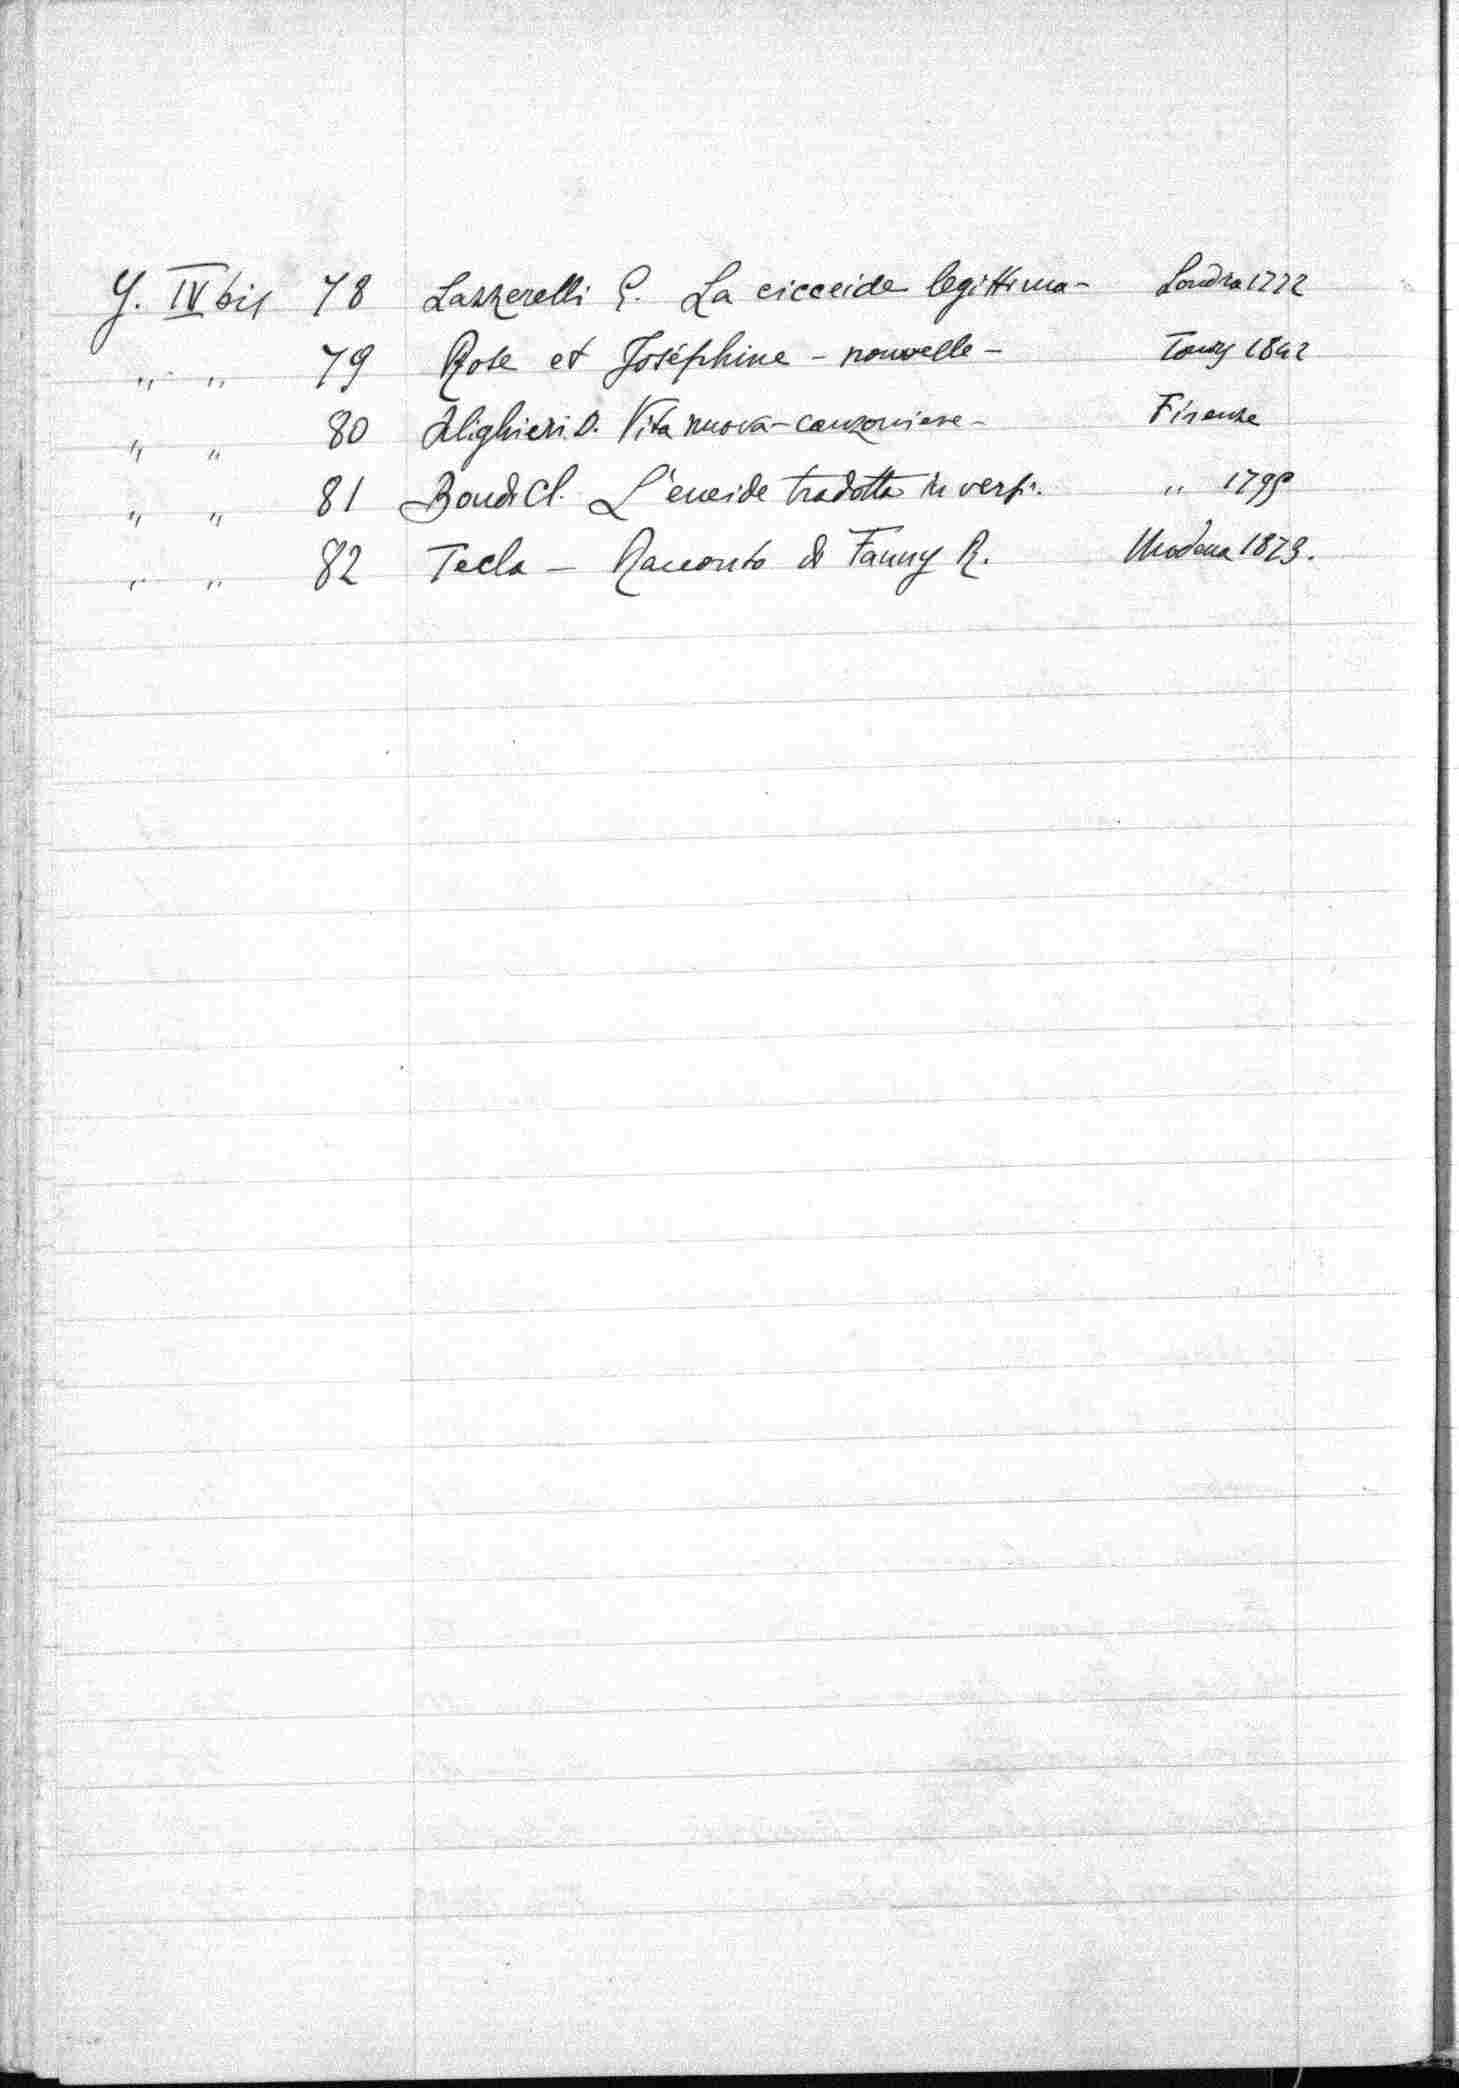 Y. IV bis 78 Lazzerelli G. La cicceide legittima - Londra 1772
" " 79 Rose et Joséphine - nouvelle - Tours 1842
" " 80 Alighieri D. Vita nuova - canzoniere - Firenze
" " 81 Bondi Cl. L'eneide tradotta in versi. " 1795
" " 82 Tecla - Racconto di Fanny R. Modena 1873.